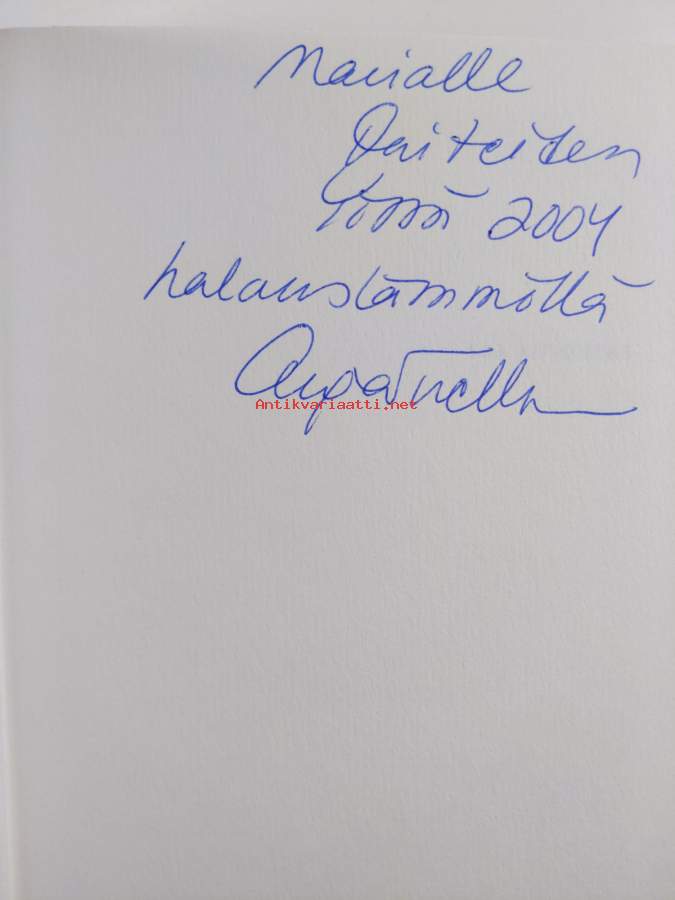 Marialle
Taiteiden
Yössä 2004
halauslämmöllä
Antikvariaatti.net